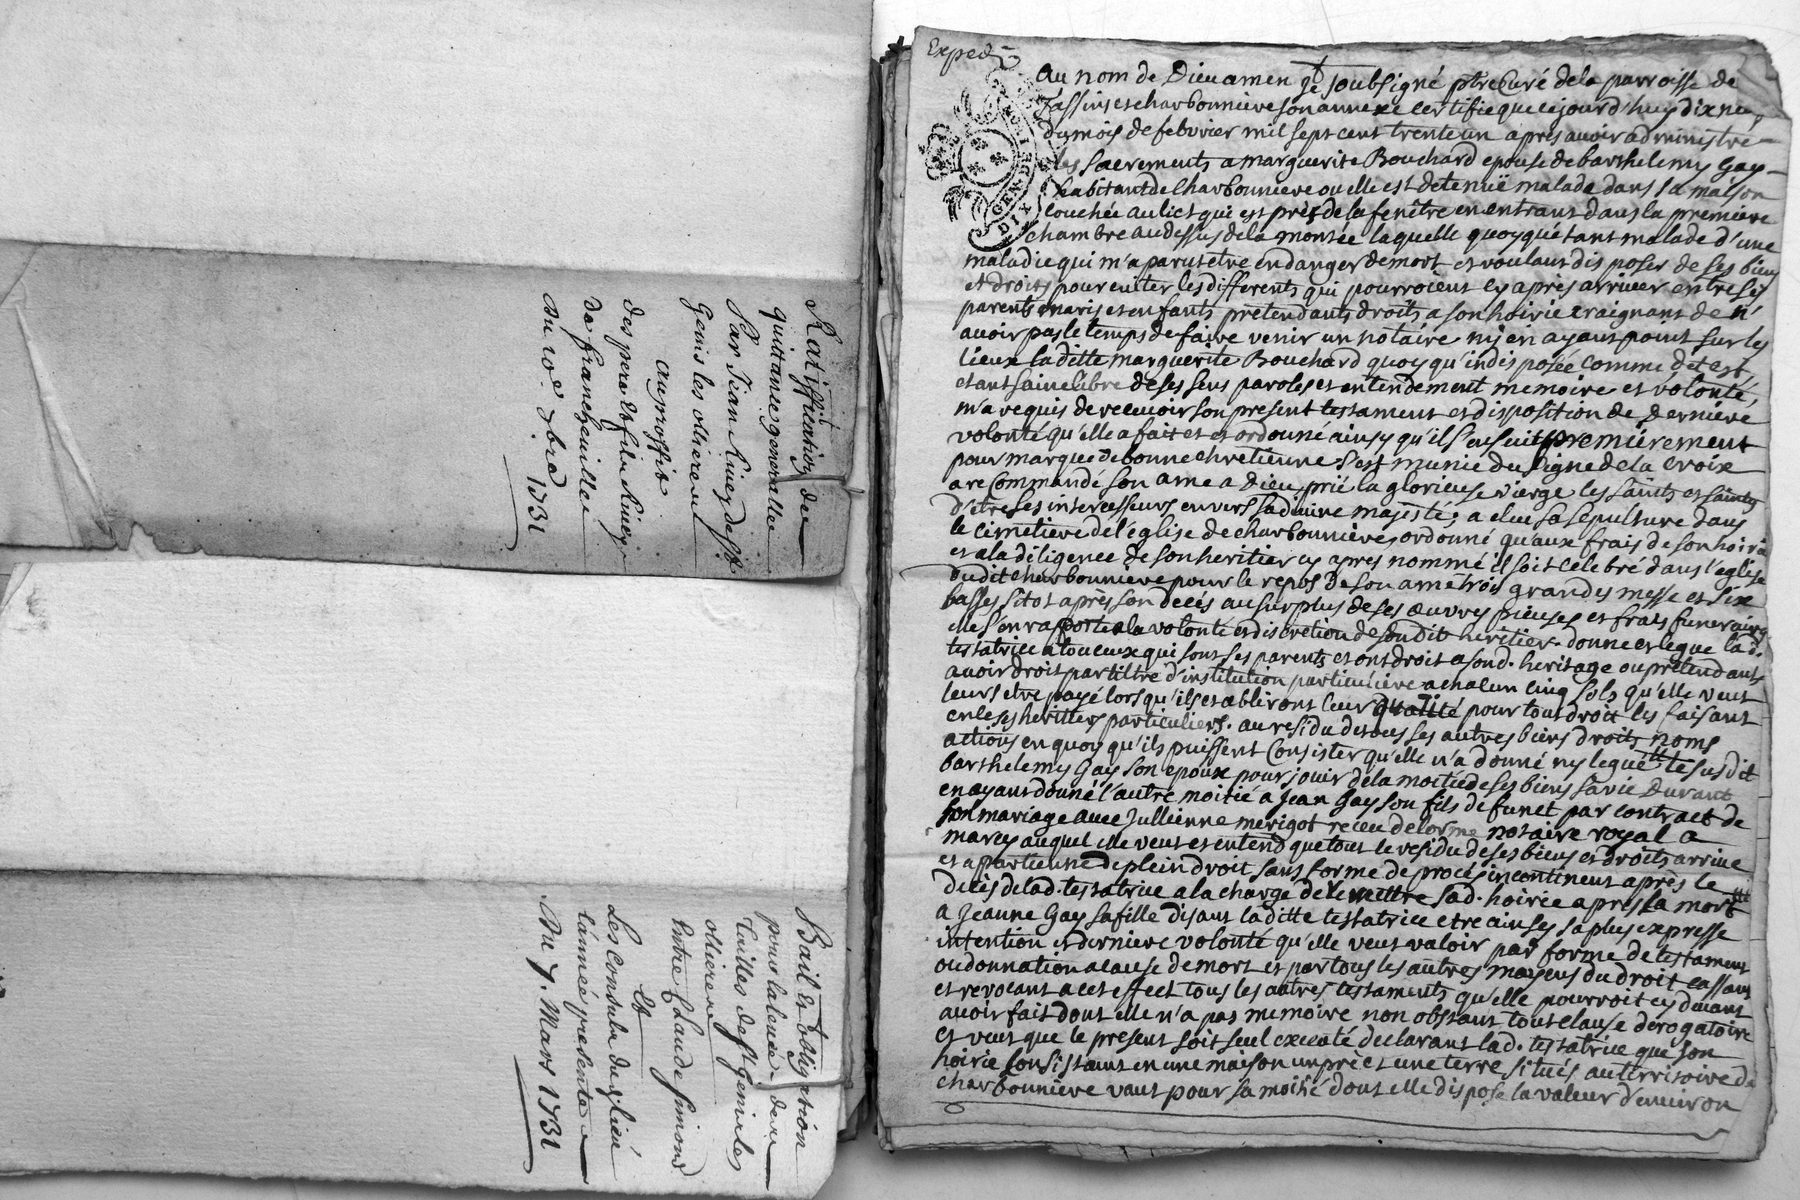 Ratiffication de
quittance generalle
Par Jean Rivey de St
Genis les ollieres
au proffit
des pere et fils Rivey
de francheville
Du 10e xbre 1731
Bail et obligation
pour la levée des
tailles de St genis les
ollieres
Entre Claude Simond
et
Les consuls dud. lieu
l'année presente
Du 7. Mars 1731
Exped
GEN. DE
DIX
Au nom de Dieu amen Je soubsigné ptre Curé de la parroisse de
Tassins et charbonniere son annexe certifie que cejourd'huy dix neuf
du mois de febvrier mil sept cent trente un apres avoir administré
les sacrements a marguerite Bouchard epouse de barthelemy Gay
habitant de Charbonniere ou elle est detenuë malade dans sa maison
couchée au lict qui est près de la fenêtre en entrant dans la premiere
chambre au dessus de la montée laquelle quoyqu'étant malade d'une
maladie qui m'a parut etre en danger de mort et voulant disposer de ses biens
et droits pour eviter les differents qui pourroient cy après arriver entre ses
parents maris et enfants prétendants droits a son hoirie craignant de n'
avoir pas le temps de faire venir un notaire ny en ayant point sur les
lieux laditte marguerite Bouchard quoy qu'indisposée comme dit est,
etant saine et libre de ses sens paroles et entendement memoire et volonté,
m'a requis de recevoir son present testament et disposition de derniere
volonté qu'elle a fait et et ordonné ainsy qu'il s'ensuit premierement
pour marque de bonne chretienne s'est munie du signe de la croix
a recommandé son ame a Dieu prié la glorieuse vierge les saints et saintes
d'etre ses intercesseurs envers sa divine majesté; a elue sa sepulture dans
le cimetiere de l'église de charbonniere, ordonné qu'aux frais de son hoirie
et a la diligence de son heritier cy apres nommé il soit célébré dans l'eglise
dudit charbonniere pour le repos de son ame trois grandes messe et six
basses sitot après son decés au surplus de ses œuvres pieuses et frais funeraires
elle s'en rapporte a la volonté et discretion de sondit heritier. donne et legue lad.
testatrice a tous ceux qui sont ses parents et ont droit a sond. heritage ou prétendants
avoir droit par tiltre d'institution particuliere a chacun cinq sols qu'elle veut
leurs etre payé lorsqu'ils etabliront leur qualité pour tout droit les faisant
en ce ses heritiers particuliers. au residu de tous ses autres biens droits noms
actions en quoy qu'ils puissent consister qu'elle n'a donné ny legué le susdit
barthelemy Gay son epoux pour jouir de la moitié de ses biens sa vie durant
en ayant donné l'autre moitié a Jean Gay son fils defunct par contract de
son mariage avec Jullienne merigot receu delorme notaire royal a
marcy auquel elle veut et entend que tout le residu de ses biens et droits arrive
et apartienne de plein droit sans forme de procés incontinent après le
decés de lad. testatrice a la charge de remettre sad. hoirie apres sa mort
a Jeanne Gay sa fille disant laditte testatrice etre ainsy sa plus expresse
intention et derniere volonté qu'elle veut valoir par forme de testament
ou donnation a cause de mort et par tous les autres moyens du droit cassant
et revocant a cet effect tous les autres testaments qu'elle pourroit cy devant
avoir fait dont elle n'a pas memoire non obstant tout clause derogatoire
et veut que le present soit seul executé declarant lad. testatrice que son
hoirie consistant en une maison un pré et une terre situés au territoire de
charbonniere vaut pour sa moitié dont elle dispose la valeur d'environ